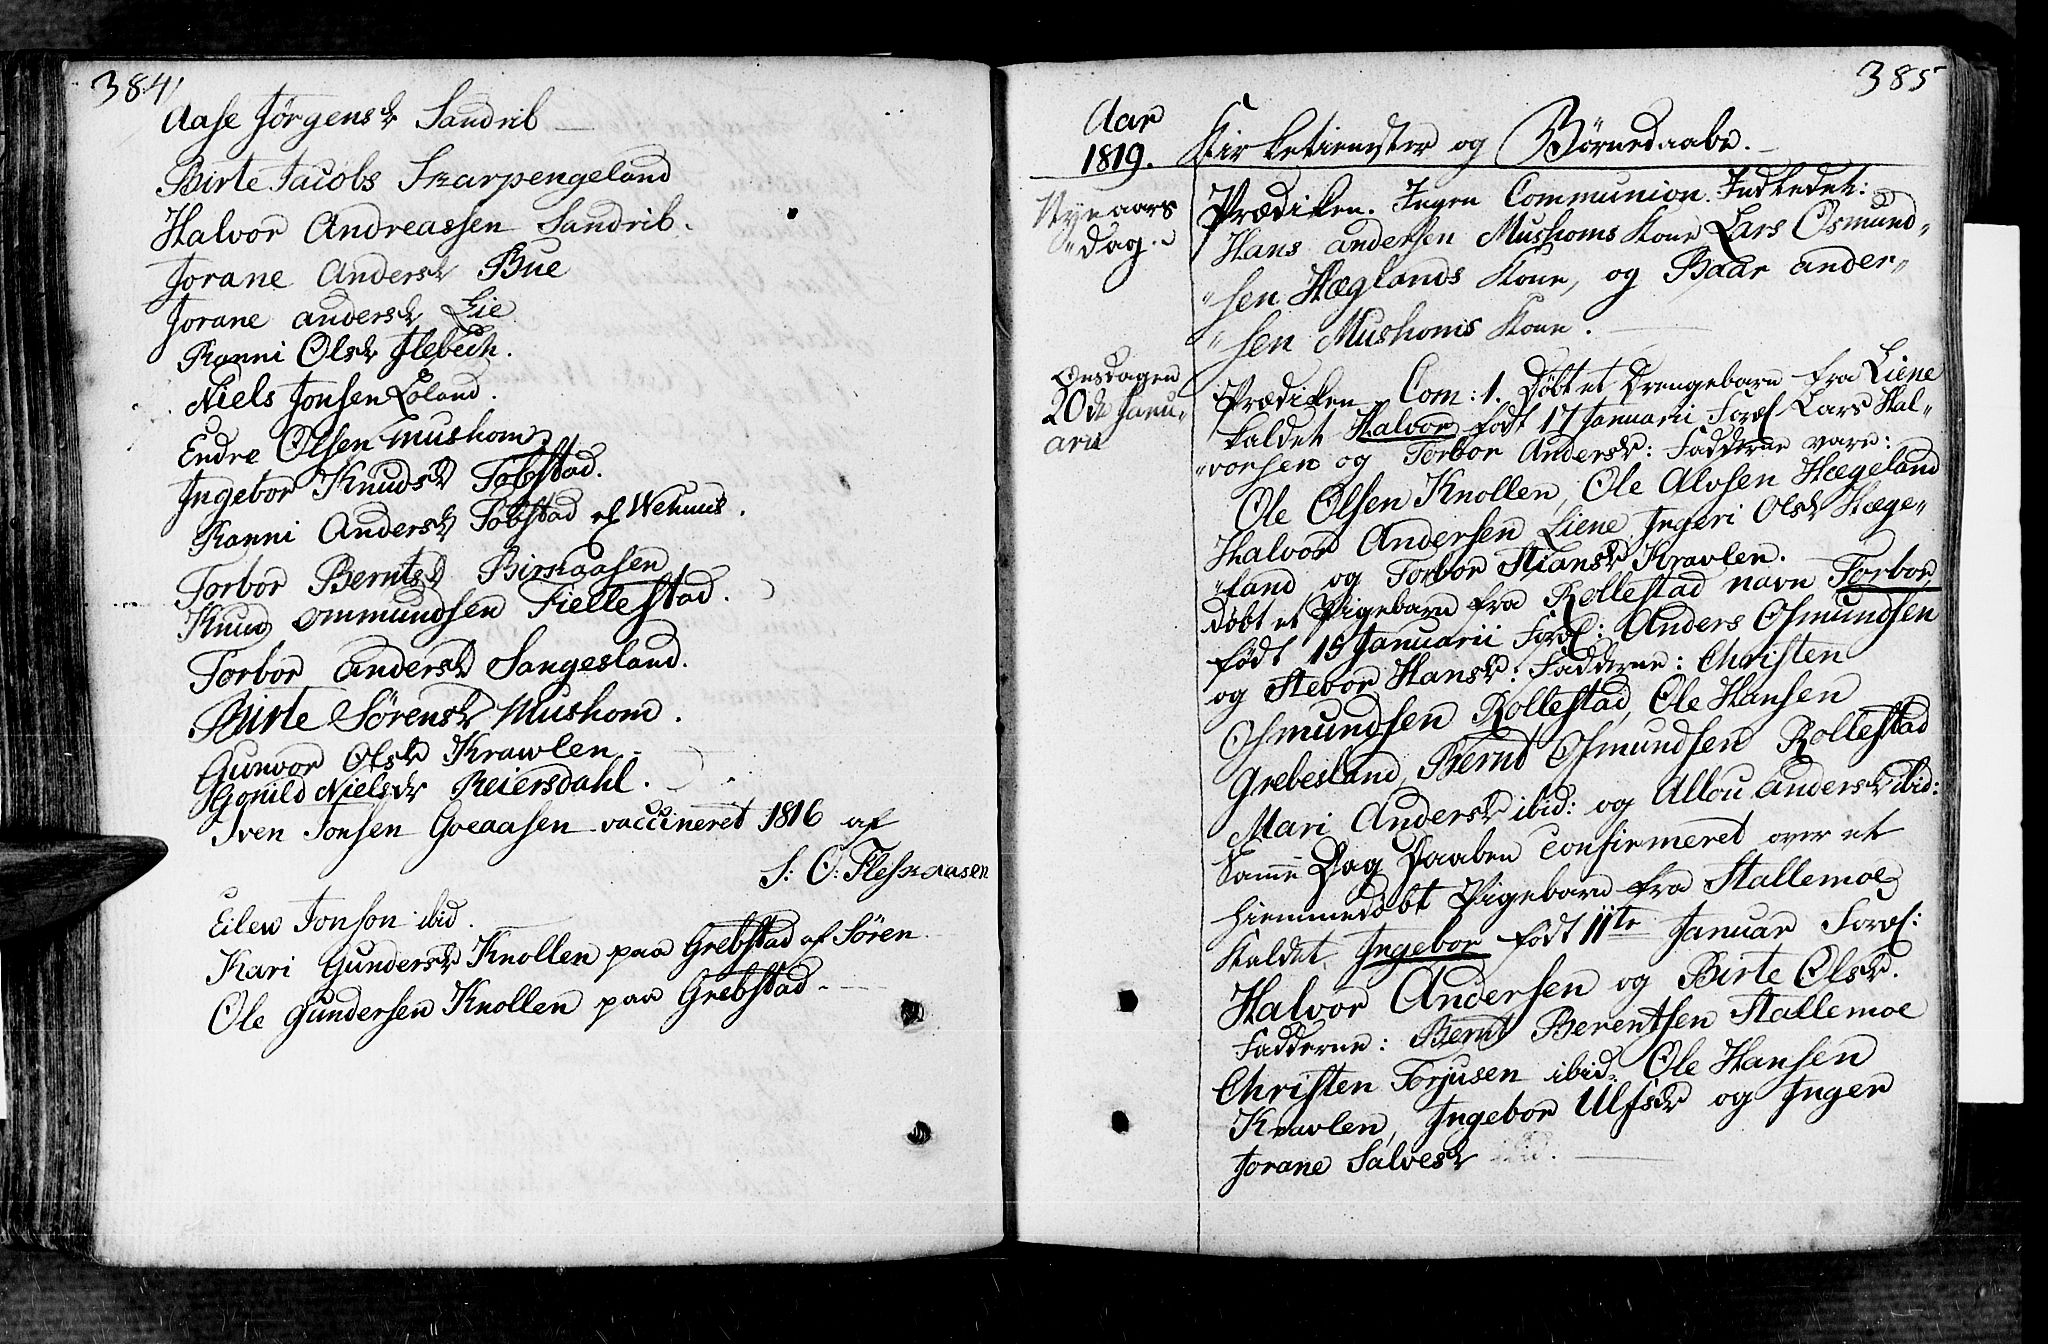 384
Aase Jörgensdr Sandrib
Birte Jacobs Skarpengeland
Halvor Andreassen Sandrib.
Jorane Andersdr Bue
Jorane andersdr Lie
Ranni Olsdr Flebech.
Niels Jonsen Loland.
Endre Olsen mushom.
Ingebor Knudsdr Tobstad.
Ranni Andersdr Tobstad af Wehuus.
Torbor Berntsdr Birkaasen
Knud ommundsen Fiellestad.
Torbor andersdr Sangesland.
Birte Sörensdr Mushom.
Gunvor Olsdr Krawlen
Gonild Nielsdr Reiersdahl.
Iven Jonsen Goeaasen vaccineret 1816 af
S: O: Fleskaasen
Eilev Jonson ibid.
Kari Gundersdr Knollen paa Grebstad af Sören
Ole Gundersen Knollen paa Grebstad
385
Aar
1819. Kirketienester og Börnedaabe.
Nytaars
dag.
Prædiken. Ingen Communion. Indledet:
Hans andersen Mushoms Kone Lars Osmund„
„sen Hæglands Kone, og Baar ander„
„sen Mushoms Kone.
Onsdagen
20de Janu„
arii
Prædiken. Com: 1. Döbt et Drengebarn fra Liene
kaldet Halvor født 17 Januarii Foræl Lars Hal„
„vorsen og Torbor Andersdr: Fadderne vare:
Ole Olsen Knollen, Ole Alvsen Hægeland
Halvor Andersen Liene, Ingeri Olsdr Hæge„
„land og Torbor Stiansdr Kravlen.
döbt et Pigebarn fra Rollestad navn Torbor
født 15 Januarii Foræl: Anders Osmundsen
og Stebor Hansdr: Fadderne: Christen
Osmundsen Rollestad, Ole Hansen
Grebesland, Bernd Osmundsen Rollestad
Mari Andersdr ibid: og Allou Andersdr ibid:
Samme Dag Daaben confirmeret over et
hiemmedöbt Pigebarn fra Stallemoe
kaldet Ingebor født 11te Januar Foræl:
Halvor Andersen og Birte Olsdr.
Fadderne: Bernt Berentsen Stallemoe
Christen Torjusen ibid. Ole Hansen
Kravlen, Ingebor Ulfsdr og Inger
Jorane Salvesdr